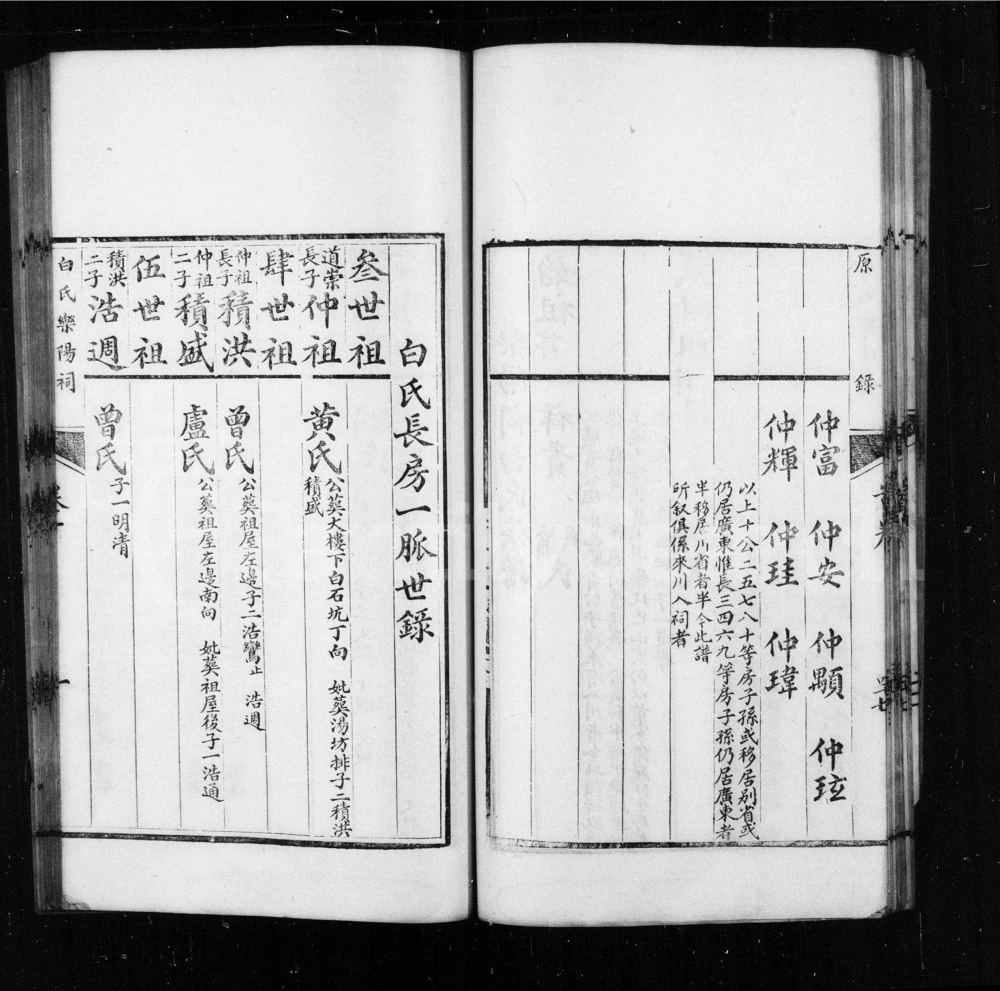 原 錄
仲富 仲安 仲顯 仲玹
仲輝 仲珪 仲瑋
以上十公二五七八十等房子孫或移居别省或
仍居廣東惟長三四六九等房子孫仍居廣東者
半移居川省者半今此譜
所叙俱係來川入祠者
白氏長房一脈世錄
叄世祖
道崇長子仲祖 黄氏 公葬大樓下白石坑丁向 妣葬湯坊排子二積洪
積盛
肆世祖
仲祖長子積洪 曾氏 公葬祖屋左邊子二浩鸞止 浩週
仲祖二子積盛 盧氏 公葬祖屋左邊南向 妣葬祖屋後子一浩通
伍世祖
積洪二子浩週 曾氏 子一明清
白氏樂陽祠 卷 一